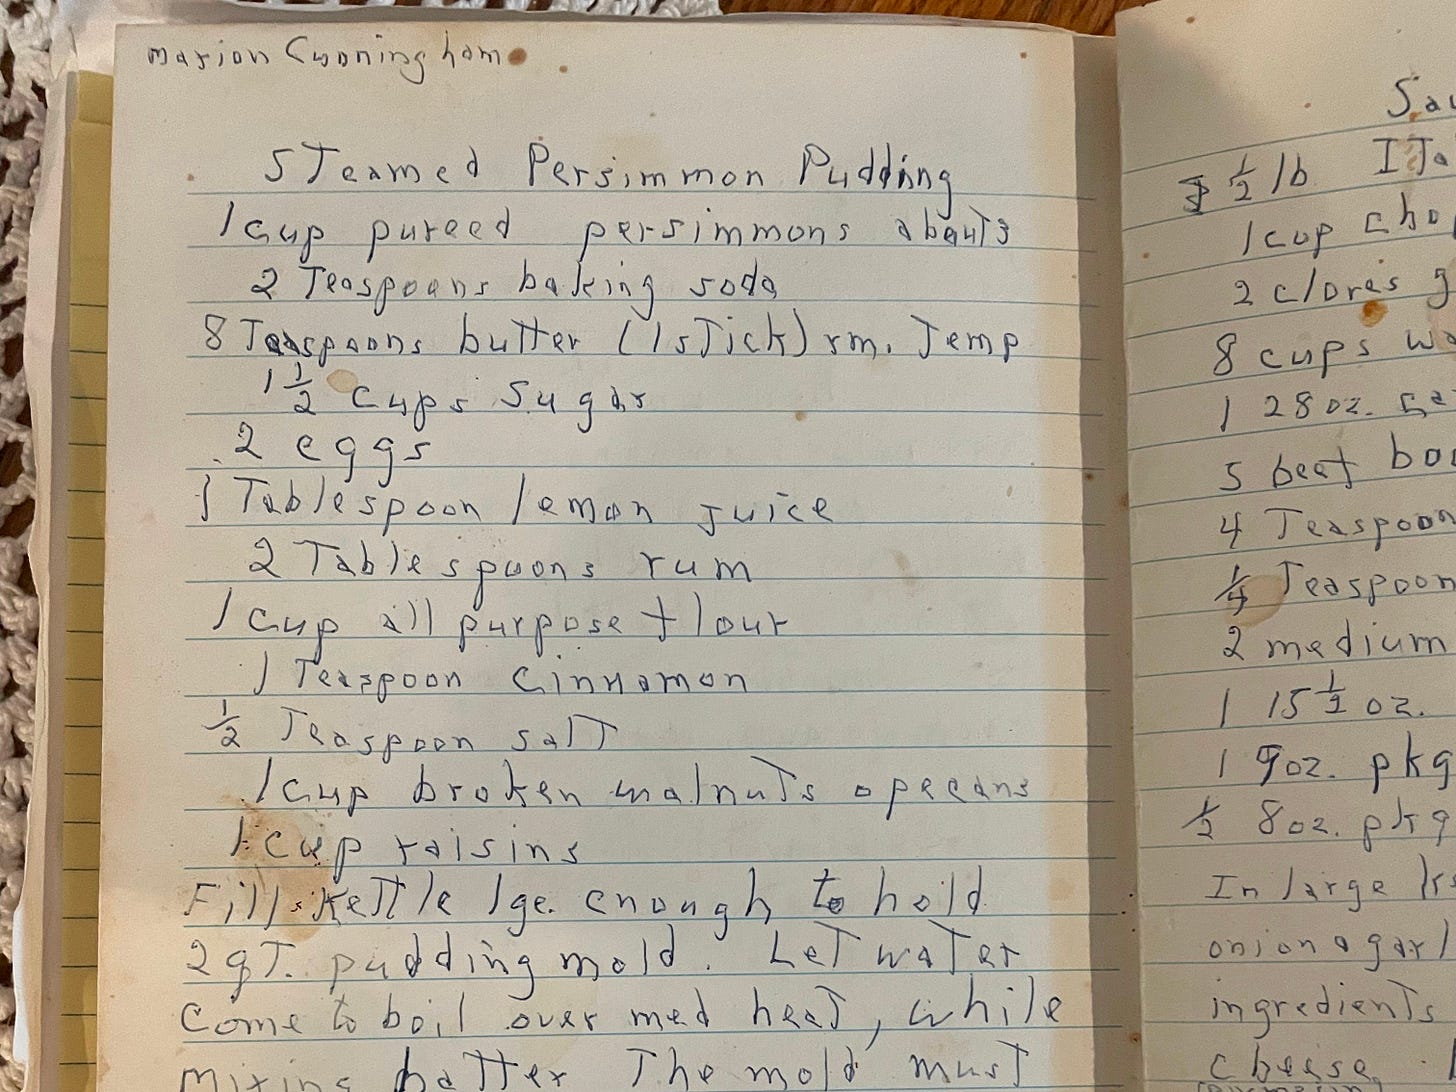 Marion Cunningham
Steamed Persimmon Pudding
1 cup pureed persimmons about 3
2 Teaspoons baking soda
8 Teaspoons butter (1 stick) rm. Temp
1 1/2 cups sugar
2 eggs
1 Tablespoon lemon juice
2 Tablespoons rum
1 cup all purpose flour
1 Teaspoon Cinnamon
1/2 Teaspoon salt
1 cup broken walnuts o pecans
1 cup raisins
Fill kettle lge. enough to hold
2 qt. pudding mold. Let water
come to boil over med heat, while
mixing batter The mold must
Sau
1/2 lb Ita
1 cup chop
2 cloves g
8 cups wa
1 28 oz.
5 beef bou
4 Teaspoon
1/4 Teaspoon
2 medium
1 15 1/2 oz.
1 9oz. pkg
1/2 8oz. pkg
In large
onion & garl
ingredients
cheese.